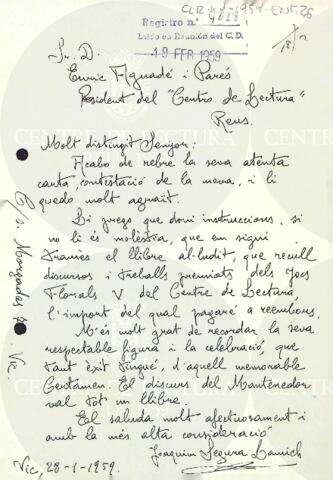 CLR
1959-ENT.26
Registro n.º 4028
Leído en Reunión del C.D.
19 FEB 1959
Sr. D.
Enric Aguadé i Parés
President del "Centro de Lectura"
Reus.
Molt distingit Senyor:
Acabo de rebre la seva atenta
carta, contestació de la meva, i li
quedo molt agrait.
Li prego que doni instruccions, si
no li és molèstia, que em sigui
tramès el llibre al·ludit, que recull
discursos i treballs premiats dels Jocs
Florals V del Centre de Lectura,
l'import del qual pagaré a reembors.
M'és molt grat de recordar la seva
respectable figura i la celebració, que
tant èxit tingué, d'aquell memorable
Certamen. El discurs del Mantenedor
val tot un llibre.
El saluda molt afectuosament i
amb la més alta consideració
Joaquim Segura Lamich
Vic, 28-1-1959.
C/ S. Morgadas
Vic